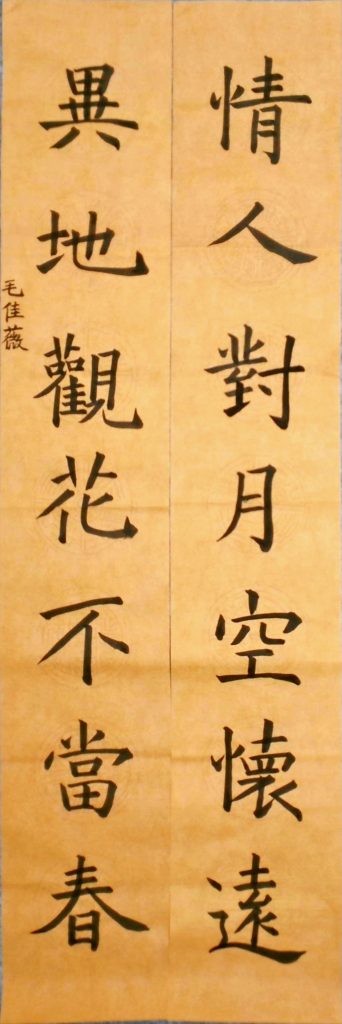 情人對月空懷遠
異地觀花不當春
毛佳薇